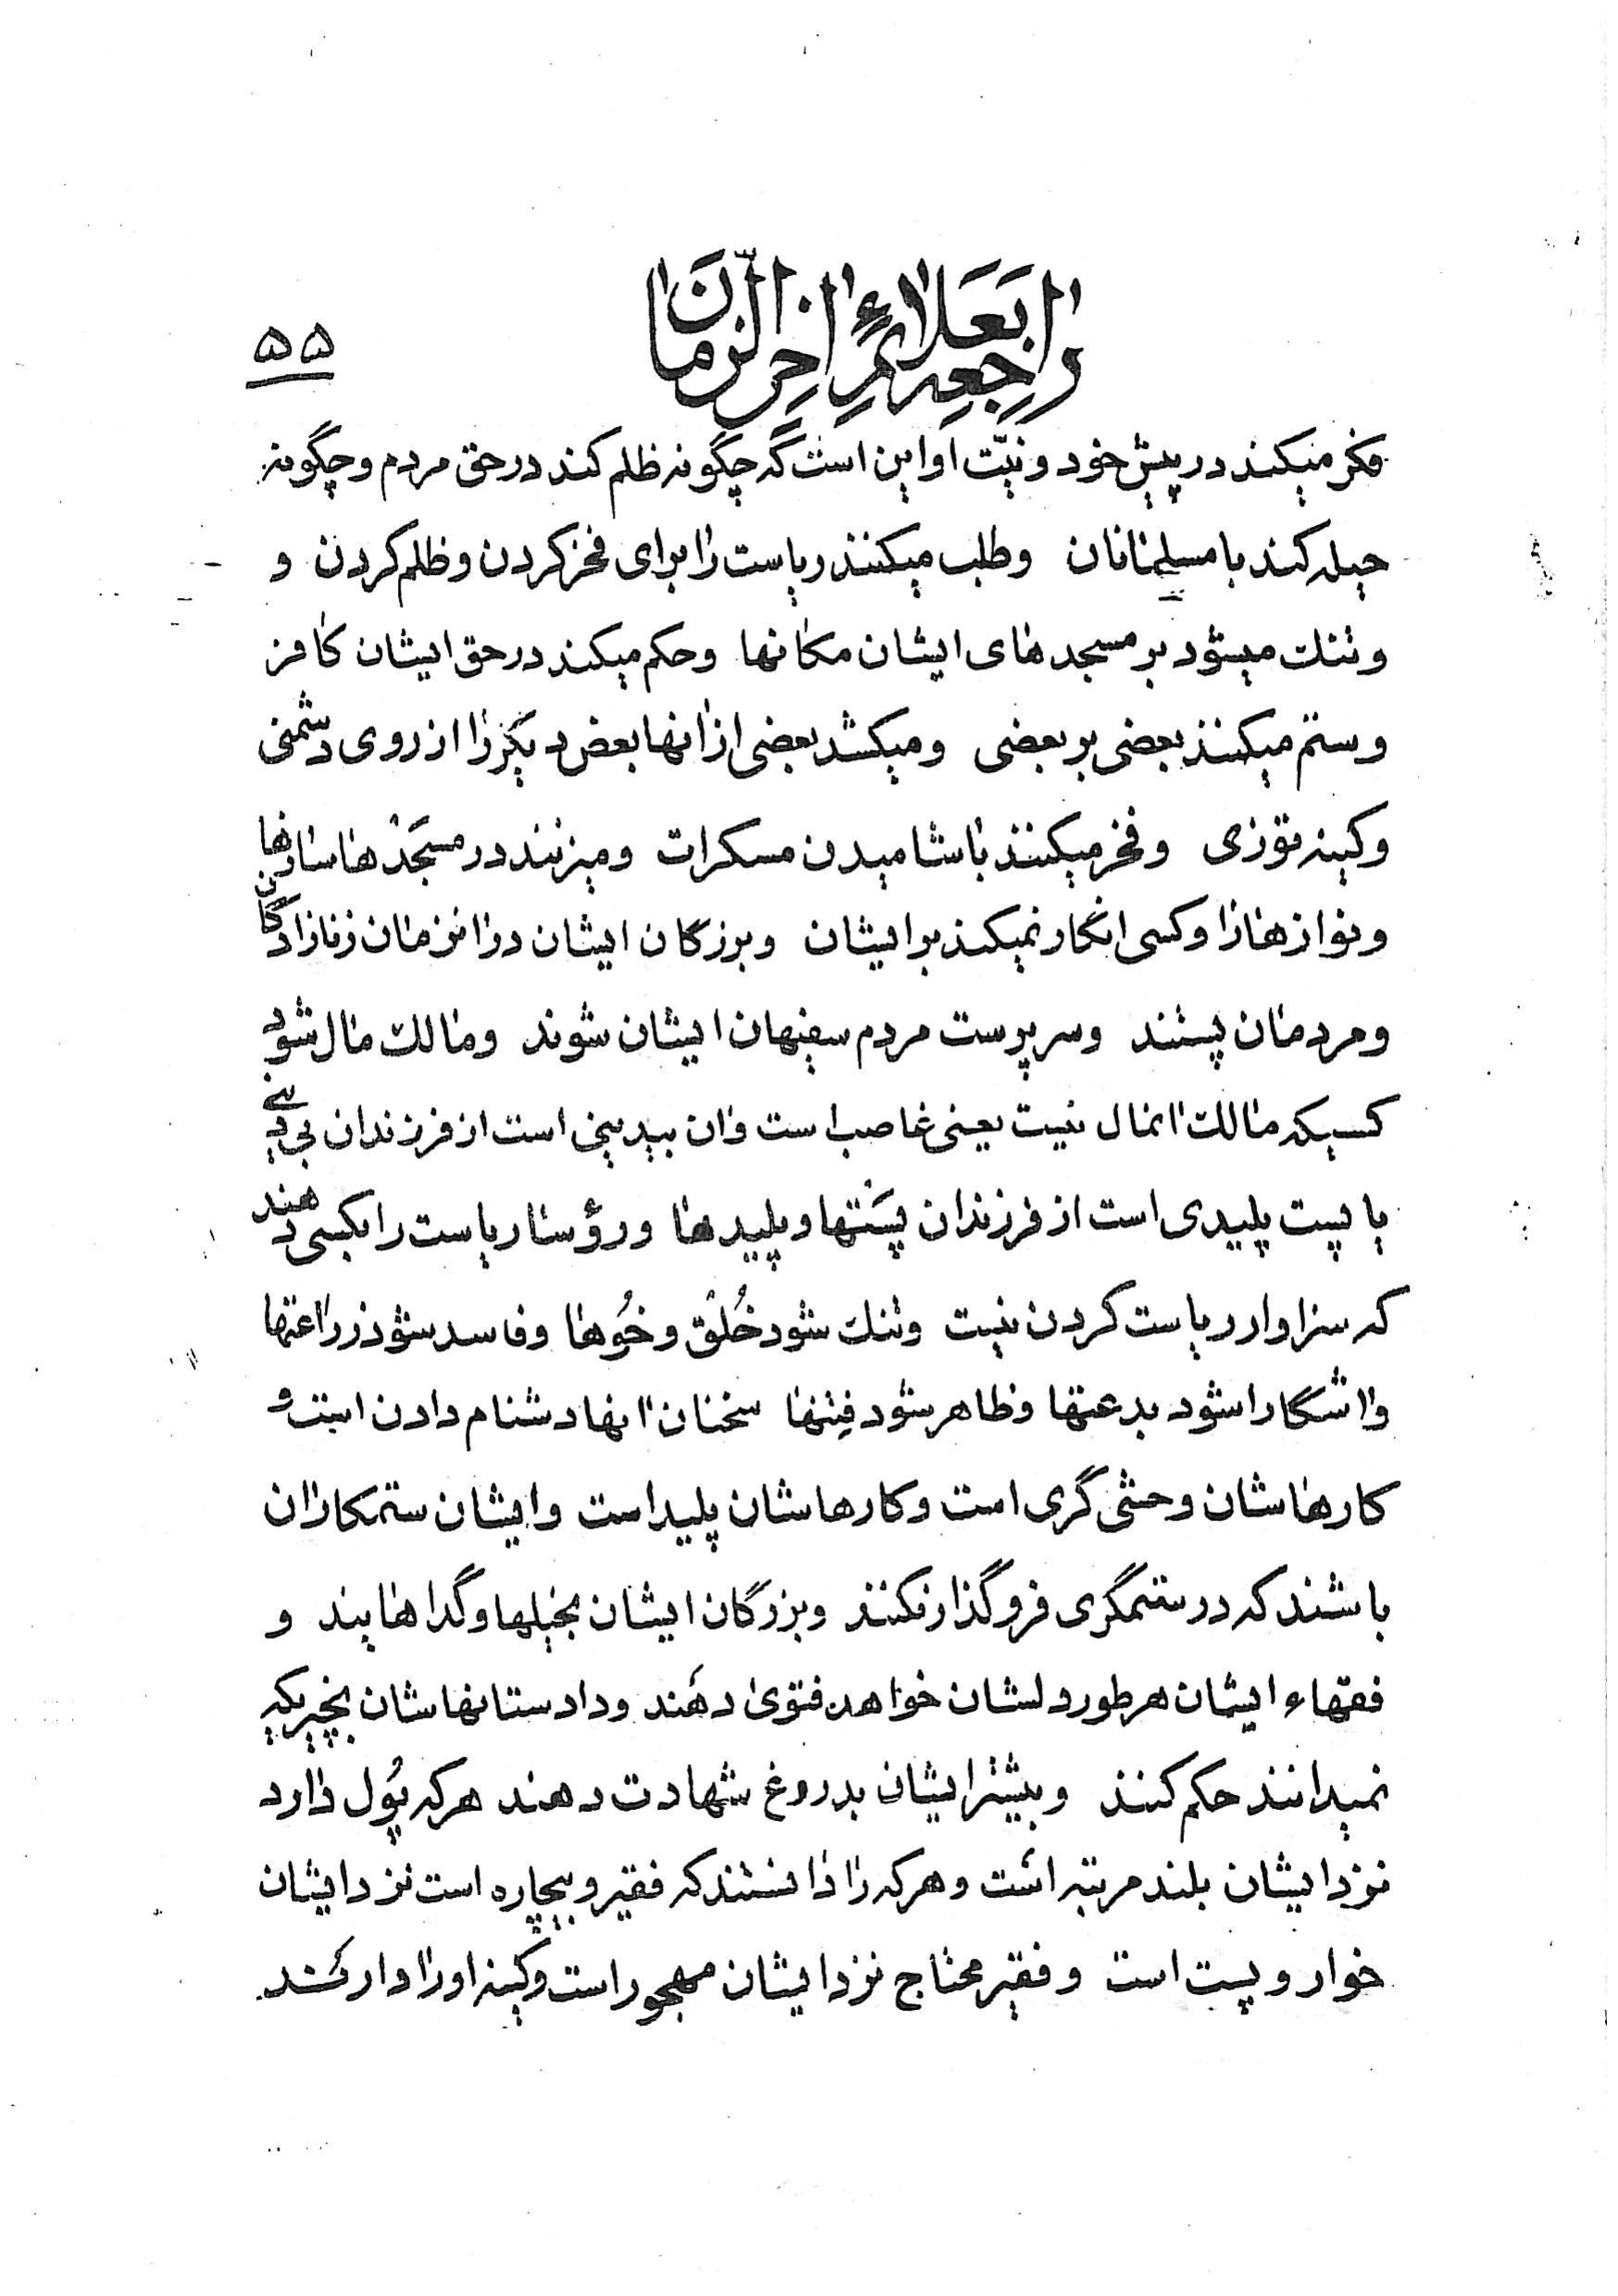 راجعه بعلائم اخر الزمان
۵۵
فکر میکند در پیش خود و نیّت او این است که چگونه ظلم کند در حق مردم و چگونه
حیله کند با مسلمانان و طلب میکنند ریاست را برای فخر کردن و ظلم کردن و
و تنك میشود بر مسجدهای ایشان مکانها و حکم میکند در حق ایشان کافر
و ستم میکنند بعضی بر بعضی و میکشد بعضی از انها بعض دیگر را از روی دشمنی
و کینه توزی و فخر میکنند باشامیدن مسکرات و میزنند در مسجدها سازها
و نوازها را و کسی انکار نمیکند بر ایشان و بزرگان ایشان در انزمان زنازادگان
و مردمان پستند و سرپرست مردم سفیهان ایشان شوند و مالك مال شود
کسیکه مالك انمال نیست یعنی غاصب است و ان بیدینی است از فرزندان بی دینی
یا پست پلیدی است از فرزندان پَستها و پلیدها و رؤسا ریاست را بکسی دهند
که سزاوار ریاست کردن نیست و تنك شود خُلق و خُوها و فاسد شود زراعتها
و اشکارا شود بدعتها و ظاهر شود فِتنها سخنان انها دشنام دادن است و
کارهاشان وحشی گری است و کارهاشان پلید است و ایشان ستمکاران
باشند که در ستمگری فروگذار نکنند و بزرگان ایشان بخیلها و گداهایند و
فقهاء ایشان هر طور دلشان خواهد فتوی دهَند و دادستانهاشان بچیزیکه
نمیدانند حکم کنند و بیشتر ایشان بدروغ شهادت دهند هر که پُول دارد
نزد ایشان بلند مرتبه است و هر که را دانستند که فقیر و بیچاره است نزد ایشان
خوار و پست است و فقیر محتاج نزد ایشان مهجور است و کینه او را دارند